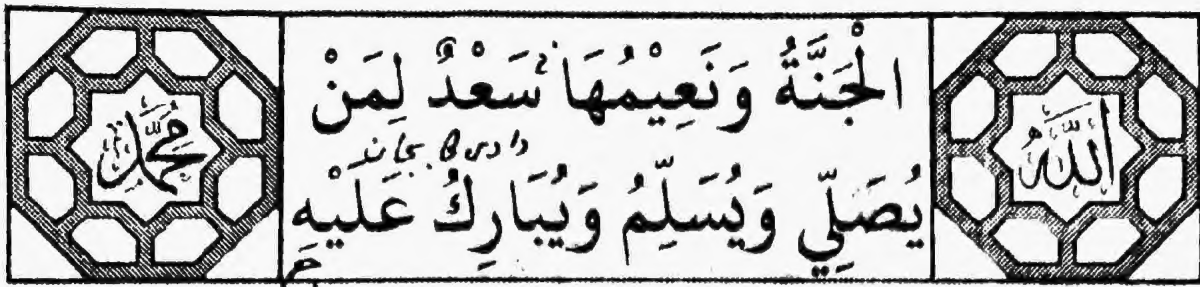 الْجَنَّةُ وَنَعِيْمُهَا سَعْدٌ لِمَنْ
يُصَلِّي وَيُسَلِّمُ وَيُبَارِكُ عَلَيْهِ
اللهُ
مُحَمَّد